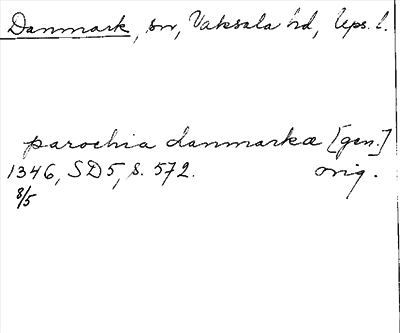 Danmark, sn, Vaksala hd, Ups. l.
parochia danmarkæ [gen.]
1346, SD 5, s. 572. orig.
8/5